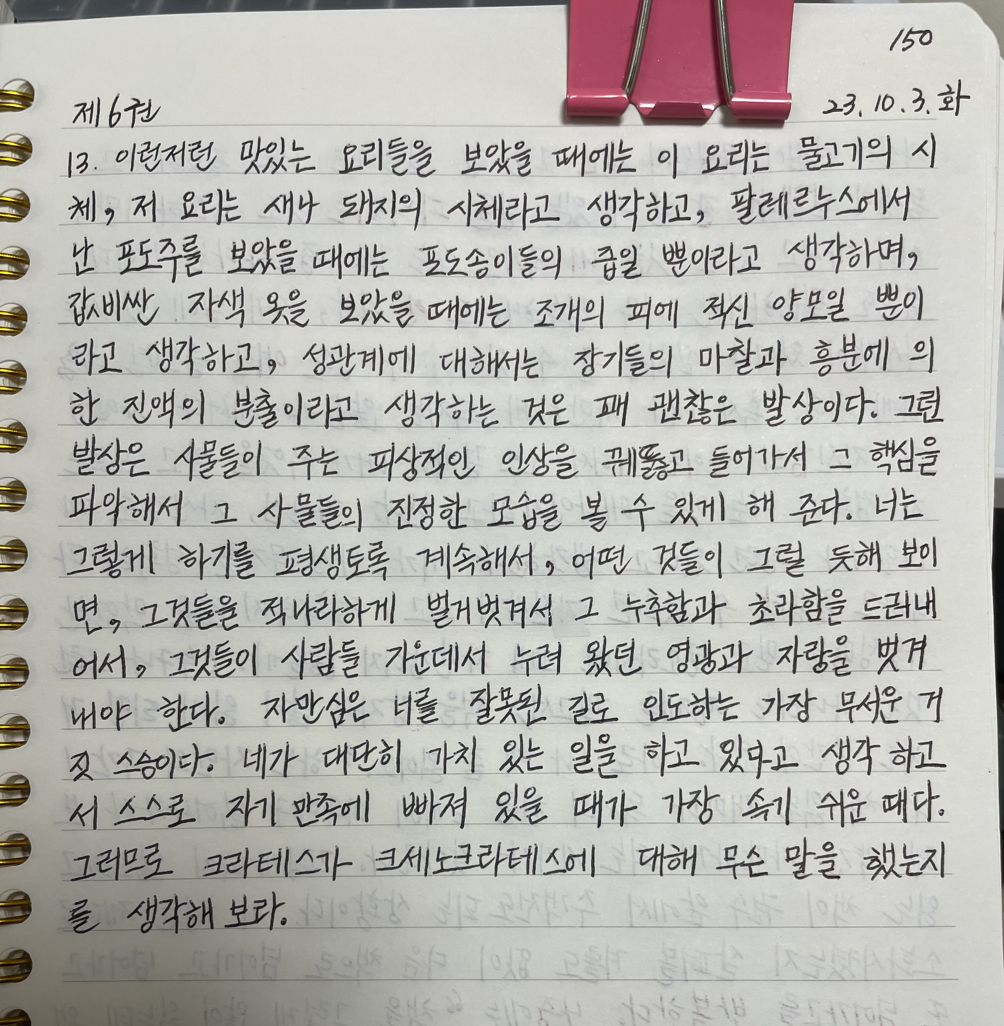 150
제6권 23.10.3.화
13. 이런저런 맛있는 요리들을 보았을 때에는 이 요리는 물고기의 시
체, 저 요리는 새나 돼지의 시체라고 생각하고, 팔레르누스에서
난 포도주를 보았을 때에는 포도송이들의 즙일 뿐이라고 생각하며,
값비싼 자색 옷을 보았을 때에는 조개의 피에 적신 양모일 뿐이
라고 생각하고, 성관계에 대해서는 장기들의 마찰과 흥분에 의
한 진액의 분출이라고 생각하는 것은 꽤 괜찮은 발상이다. 그런
발상은 사물들이 주는 피상적인 인상을 꿰뚫고 들어가서 그 핵심을
파악해서 그 사물들의 진정한 모습을 볼 수 있게 해 준다. 너는
그렇게 하기를 평생토록 계속해서, 어떤 것들이 그럴 듯해 보이
면, 그것들을 적나라하게 벌거벗겨서 그 누추함과 초라함을 드러내
어서, 그것들이 사람들 가운데서 누려 왔던 영광과 자랑을 벗겨
내야 한다. 자만심은 너를 잘못된 길로 인도하는 가장 무서운 거
짓 스승이다. 네가 대단히 가치 있는 일을 하고 있다고 생각 하고
서 스스로 자기 만족에 빠져 있을 때가 가장 속기 쉬운 때다.
그러므로 크라테스가 크세노크라테스에 대해 무슨 말을 했는지
를 생각해 보라.